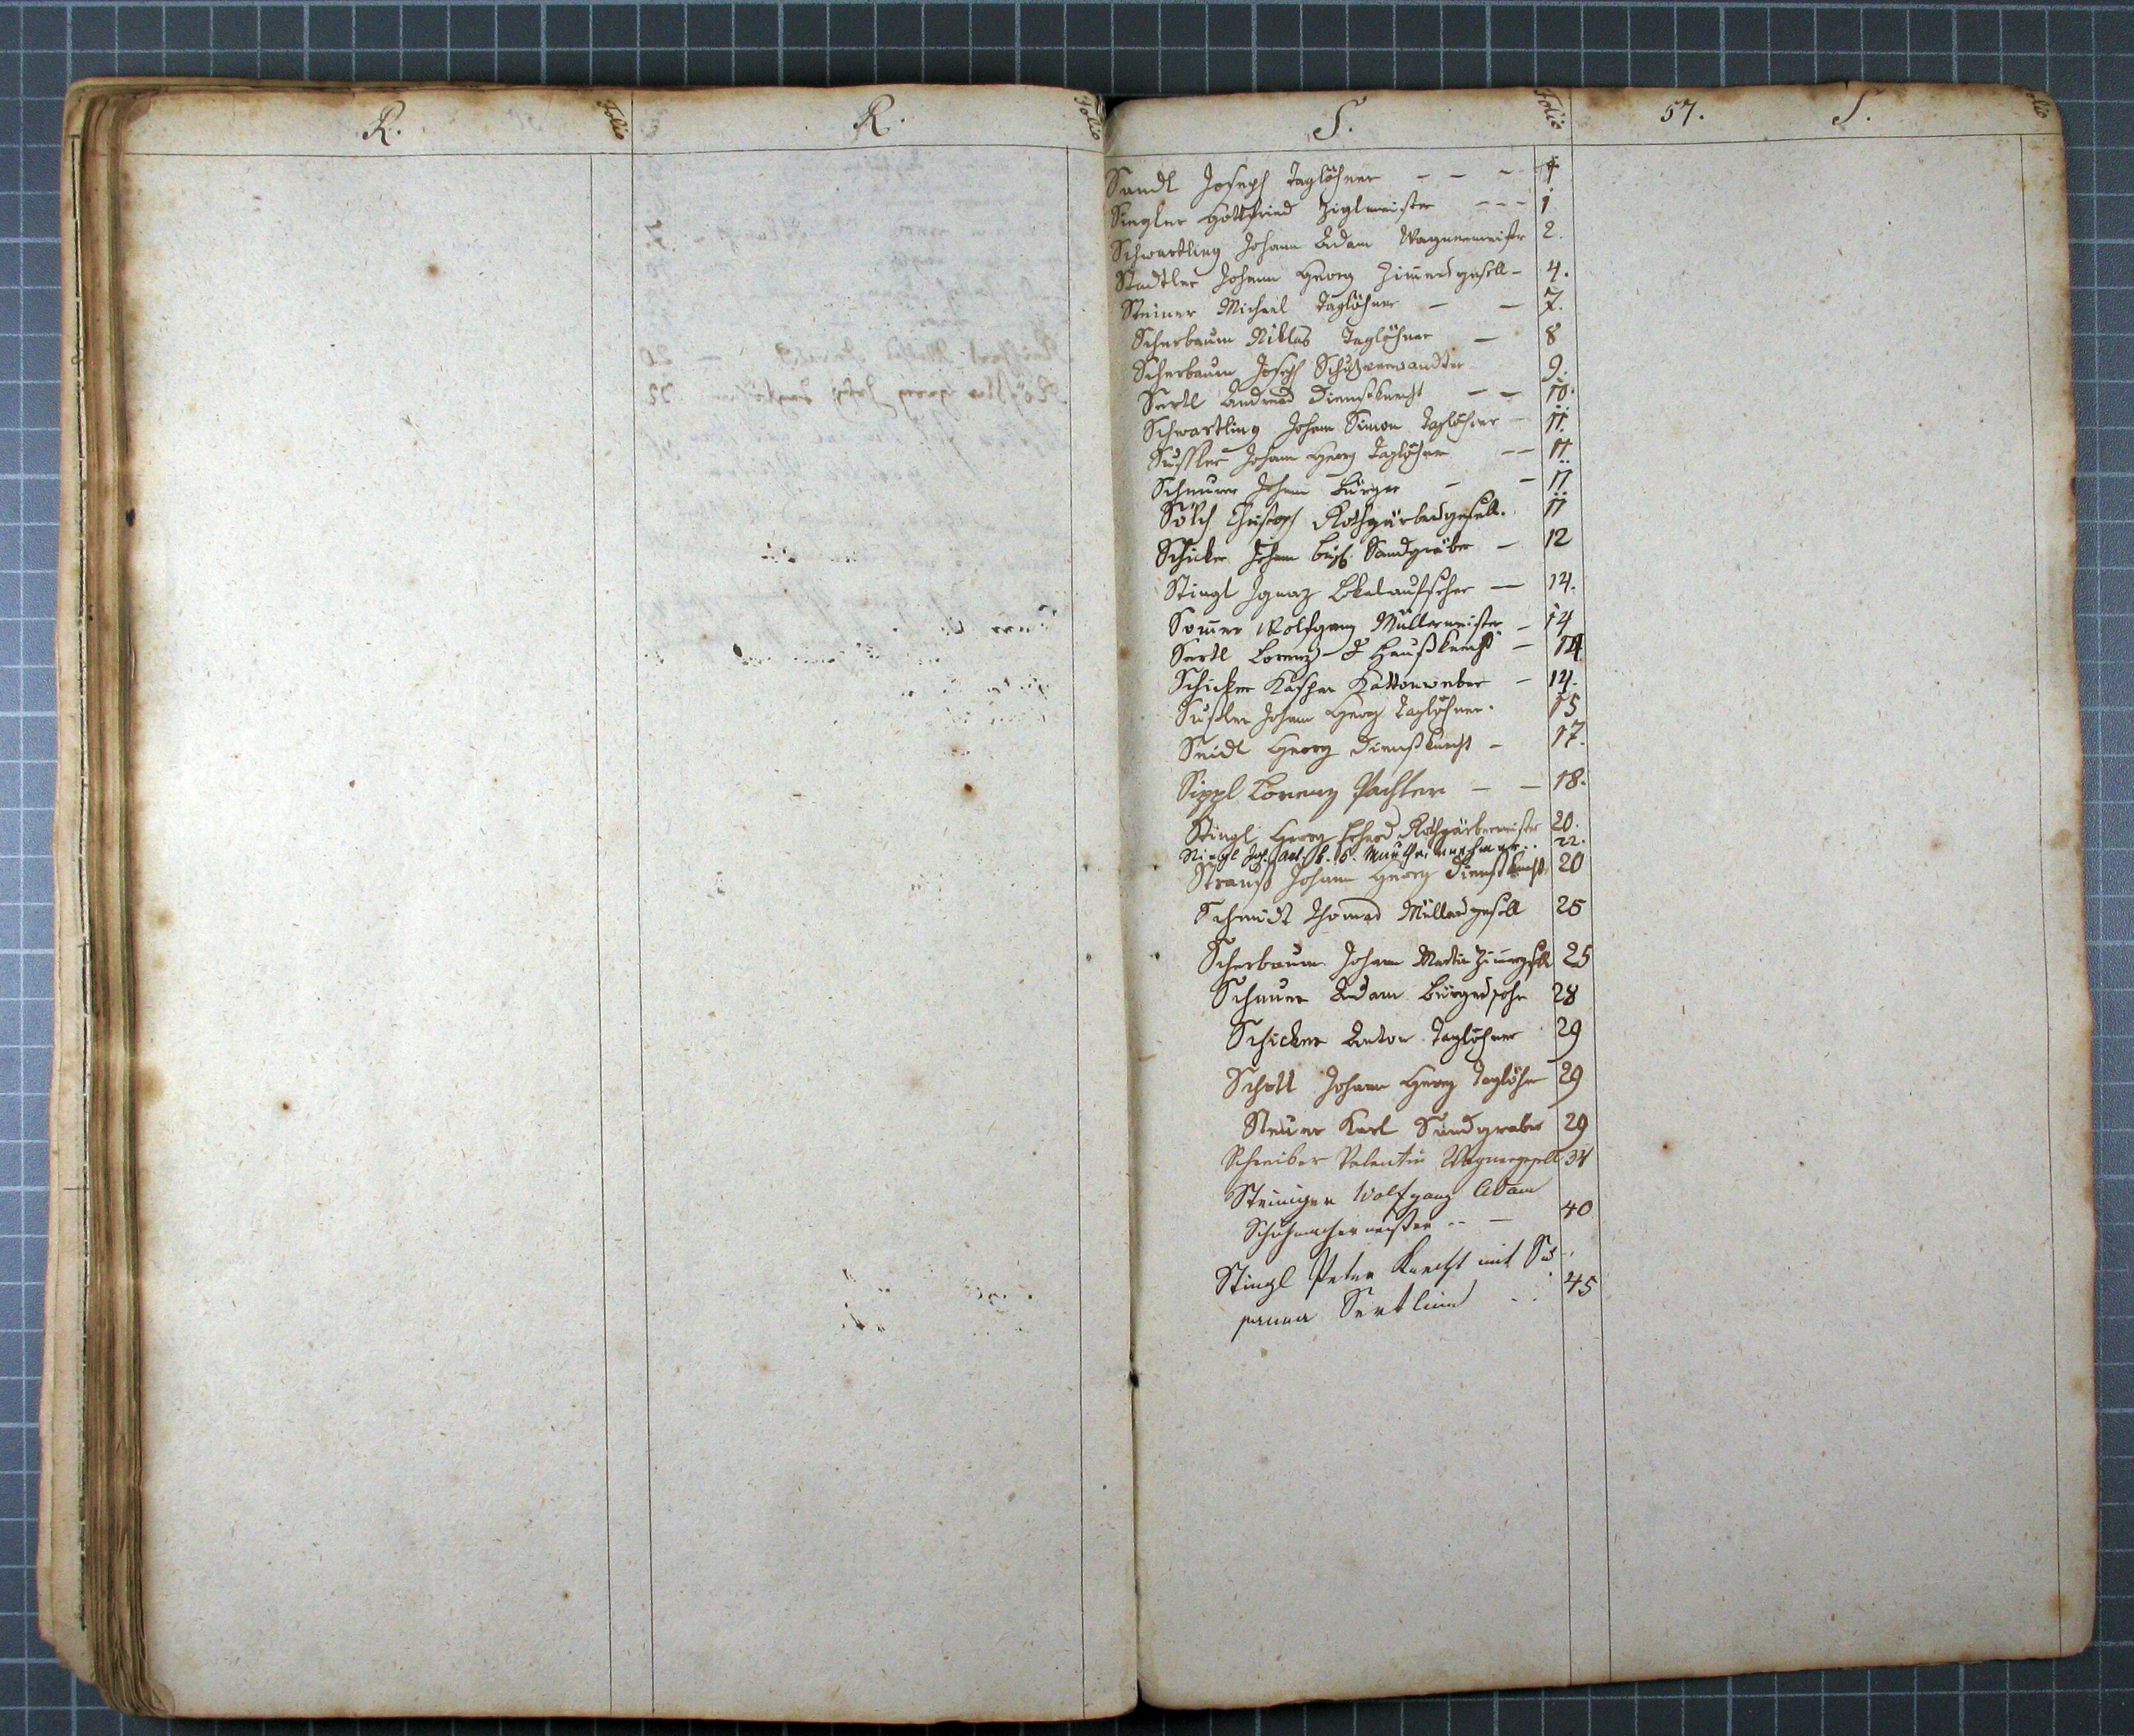 R.
Folio
R.
Folio
S.
Folio
57.
S.
olio
Sandl Joseph Taglöhner - - - 1
Siegler Gottfried Ziglmeister - - - 1
Schwartling Johann Adam Wagnermeister 2.
Stadtler Johann Georg Zimmergesell - 4.
Steiner Michael Taglöhner - - 7.
Scherbaum Niklas Taglöhner - 8
Scherbaum Joseph Schutzverwandter 9.
Sertl Andreas Dienstknecht - - 10.
Schwartling Johann Simon Taglöhner - 11.
Johann Georg Taglöhner - - 11.
Scheurer Johann Bürger - - 11
Sölch Christoph Rothgärbergesell. 11
Schicker Johann Sandgräber - 12
Stingl Ignaz Lokalaufseher - 14.
Somer Wolfgang Müllermeister - 14
Sertl Lorenz Haußknecht - 14
Schicker Kaspar Kattonweber - 14.
Johann Georg Taglöhner. 15
Seidl Georg Dienstknecht - 17.
Sippl Lorenz Pachter - - 18.
Stingl Georg Erhard Rothgärbermeister 20.
Jos. Ant. k. b. Mautheinnehmer.. 22.
Strauß Johann Georg Dienstknecht 20
Schmidt Thomas Müllergesell 25
Scherbaum Johann Martin Zimergsell 25
Scheurer Adam Bürgerssohn 28
Schicker Anton Taglöhner 29
Schott Johann Georg Taglöhner 29
Steurer Karl Sandgraber 29
Schreiber Valentin Wagnergesell 34
Steiniger Wolfgang Adam
Schuhmachermeister - - 40
Stingl Peter Knecht mit Su
sanna Sertlin 45